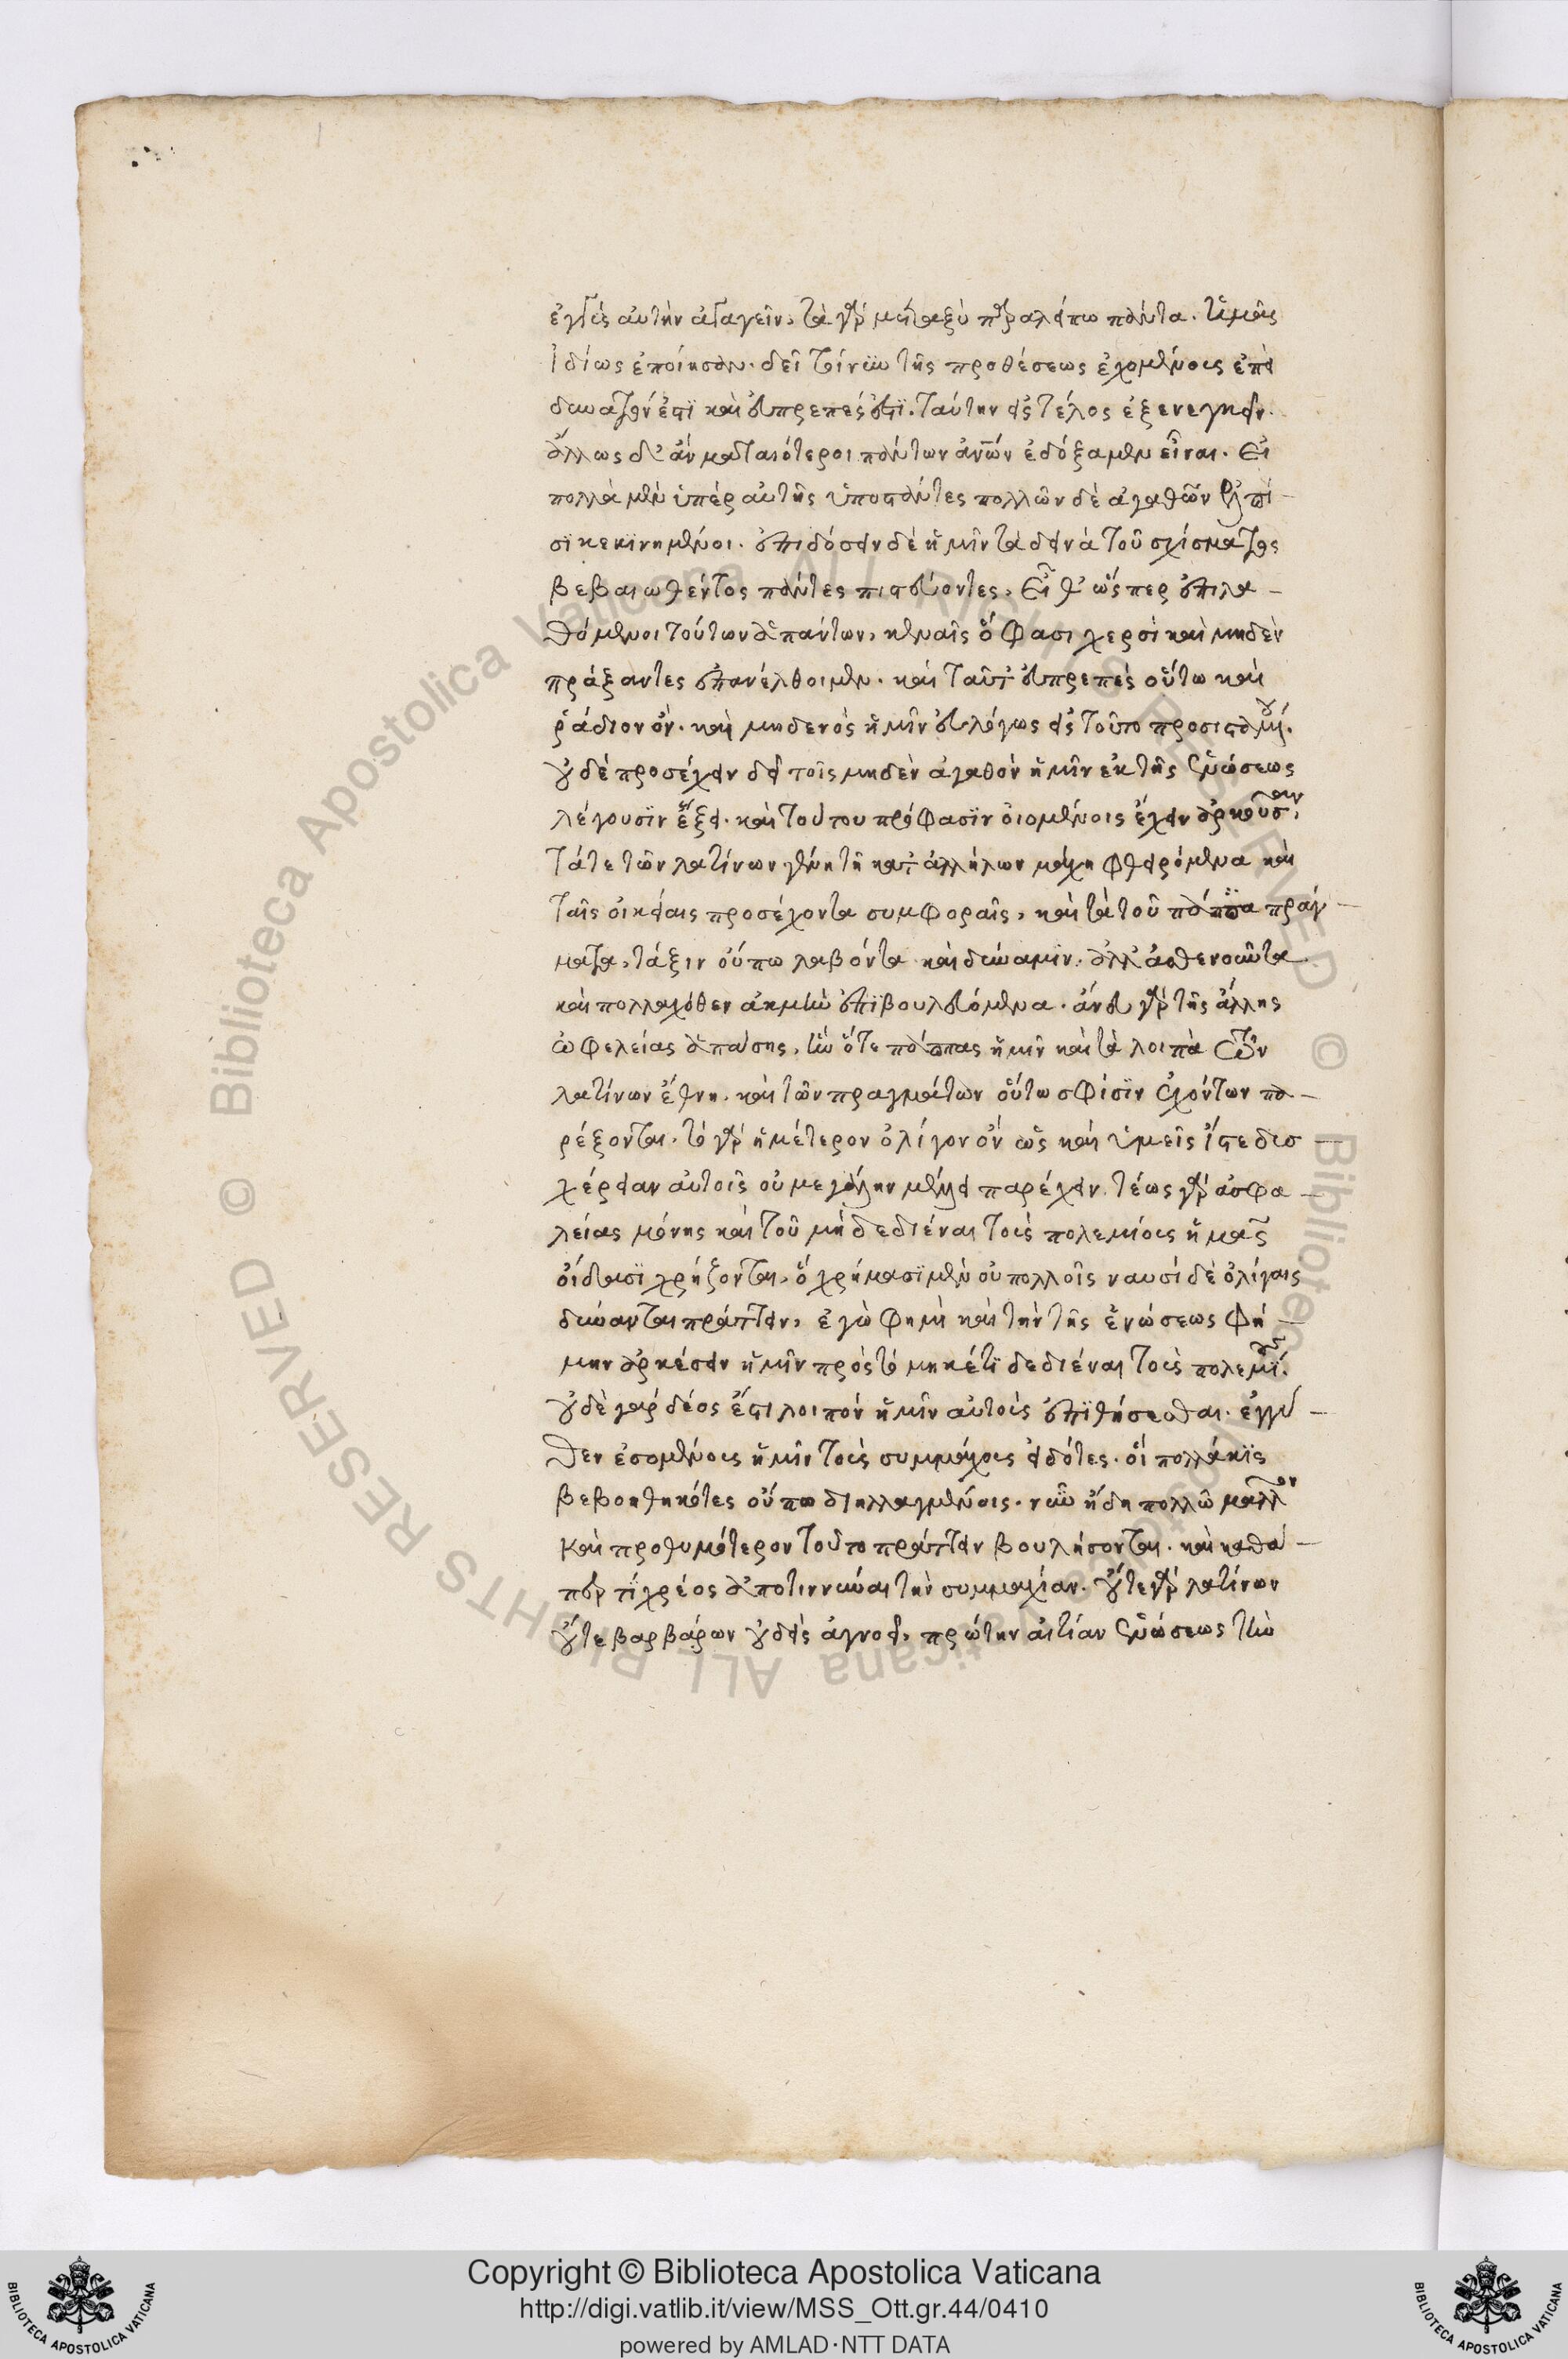 ἐχθὲς αὐτὴν ἀγαγεῖν, τὰ γὰρ μεταξὺ παραλείπω πάντα. ὑμᾶς
ἰδίως ἐποίησαν. δεῖ τοίνυν τῆς προθέσεως ἐχομένους ἐπεὶ
δυνατόν ἐστι καὶ εὐπρεπές ἐστι. ταύτην εἰς τέλος ἐξενεγκεῖν.
ἄλλως δ' ἂν ματαιότεροι πάντων ἀνῶν ἐδόξαμεν εἶναι. εἰ
πολλὰ μὲν ὑπὲρ αὐτῆς ὑποστάντες πολλῶν δὲ ἀγαθῶν ἐλπί-
σι κεκινημένοι. ἐπιδώσειν δὲ ἡμῖν τὰ δεινὰ τοῦ σχίσματος
βεβαιωθέντος πάντες πιστεύοντες, εἶθ' ὥσπερ ἐπιλα-
θόμενοι τούτων ἁπάντων, κεναῖς ὅ φασι χερσὶ καὶ μηδὲν
πράξαντες ἐπανέλθοιμεν. καὶ ταῦτ' εὐπρεπὲς οὕτω καὶ
ῥάδιον ὄν. καὶ μηδενὸς ἡμῖν εὐλόγως εἰς τοῦτο προσισταμένου.
οὐδὲ προσέχειν δεῖ τοῖς μηδὲν ἀγαθὸν ἡμῖν ἐκ τῆς ἑνώσεως
λέγουσιν ἥξει. καὶ τούτου πρόφασιν οἰομένοις ἔχειν ἀρκοῦσαν,
τά τε τῶν λατίνων γένη τῇ κατ' ἀλλήλων μάχῃ φθειρόμενα καὶ
ταῖς οἰκείαις προσέχοντα συμφοραῖς, καὶ τὰ τοῦ πάππα πράγ-
ματα, τάξιν οὔπω λαβόντα καὶ δύναμιν. ἀλλ' ἀσθενοῦντα
καὶ πολλαχόθεν ἀκμὴν ἐπιβουλευόμενα. ἄνευ γὰρ τῆς ἄλλης
ὠφελείας ἁπάσης, ἣν ὅ τε πάππας ἡμῖν καὶ τὰ λοιπὰ τῶν
λατίνων ἔθνη. καὶ τῶν πραγμάτων οὕτω σφίσιν ἐχόντων πα-
ρέξονται. τὸ γὰρ ἡμέτερον ὀλίγον ὂν ὡς καὶ ὑμεῖς ἴστε δυσ-
χέρειαν αὐτοῖς οὐ μεγάλην μέλλει παρέχειν. τέως γὰρ ἀσφα-
λείας μόνης καὶ τοῦ μὴ δεδιέναι τοὺς πολεμίους ἡμᾶς
οἴδασι χρῄζοντας, ὃ χρήμασι μὲν οὐ πολλοῖς ναυσὶ δὲ ὀλίγαις
δύνανται πράττειν, ἐγώ φημι καὶ τὴν τῆς ἑνώσεως φή-
μην ἀρκέσειν ἡμῖν πρὸς τὸ μηκέτι δεδιέναι τοὺς πολεμίους.
οὐδὲ γὰρ δέος ἔστι λοιπὸν ἡμῖν αὐτοὺς ἐπιθήσεσθαι. ἐγγύ-
θεν ἐσομένους ἡμῖν τοὺς συμμάχους εἰδότες. οἳ πολλάκις
βεβοηθηκότες οὔπω διηλλαγμένοις. νῦν ἤδη πολλῷ μᾶλλον
καὶ προθυμότερον τοῦτο πράττειν βουλήσονται. καὶ καθά-
περ τι χρέος ἀποτιννῦναι τὴν συμμαχίαν. οὔτε γὰρ λατίνων
οὔτε βαρβάρων οὐδεὶς ἀγνοεῖ, πρώτην αἰτίαν ἑνώσεως τὴν
Copyright © Biblioteca Apostolica Vaticana
http://digi.vatlib.it/view/MSS_Ott.gr.44/0410
powered by AMLAD·NTT DATA